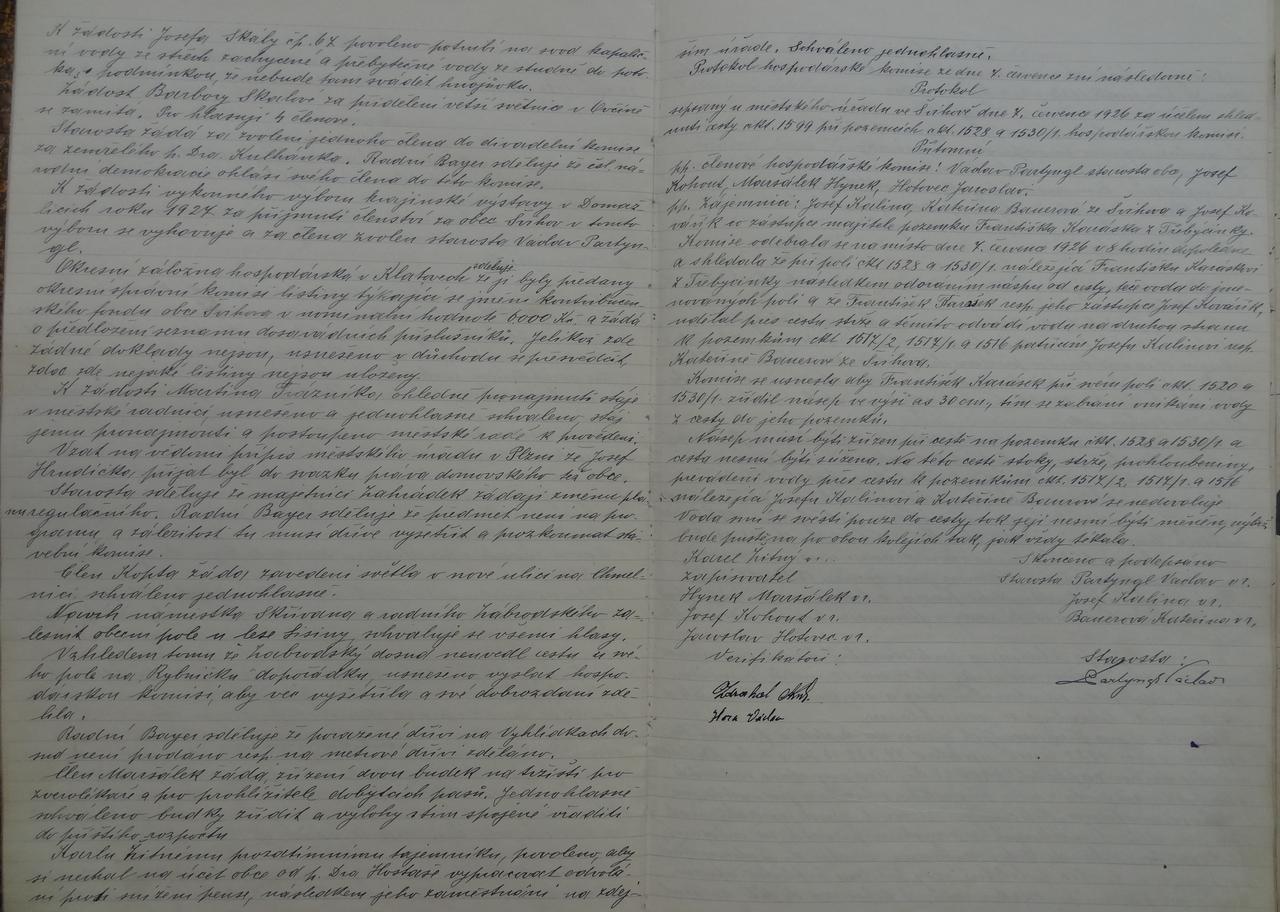 K žádosti Josefa Skály čp. 67 povoleno potrubí na svod kapalič-
ní vody ze střech zachycené a přebytečné vody ze studně do poto-
ka, s podmínkou, že nebude tam svádět hnojůvku.
Žádost Barbory Skalové za přidělení větší světnice v Ovčíně
se zamítá. Pro hlasují 4 členové.
Starosta žádá za zvolení jednoho člena do divadelní komise
za zemřelého p. Dra. Kulhánka. Radní Bayer sděluje že čsl. ná-
rodní demokracie ohlásí svého člena do této komise.
K žádosti výkonného výboru krajinské výstavy v Domaž-
licích roku 1927 za přijmutí členství za obec Švihov v tomto
výboru se vyhovuje a za člena zvolen starosta Václav Partyn-
gl.
Okresní záložna hospodářská v Klatovech sděluje že jí byly předány
okresní správní komisí listiny týkající se jmění kontribučen-
ského fondu obce Švihova v nominální hodnotě 6000 Kč. a žádá
o předložení seznamu dosavádních příslušníků. Jelikož zde
žádné doklady nejsou, usneseno v důchodu se přesvědčit,
zdož zde nejaké listiny nejsou uloženy
K žádosti Martina Trázníka, ohledně pronajmutí stáje
v městské radnici, usneseno a jednohlasně schváleno, stáj
jemu pronajmouti a postoupeno městské radě k provedení.
Vzat na vědomí přípis městského úřadu v Plzni že Josef
Hrudička, přijat byl do svazku práva domovského té obce.
Starosta sděluje že majetníci zahrádek žádají změnu plá-
nu regulačního. Radní Bayer sděluje že předmět není na pro-
gramu, a záležitost tu musí dříve vyšetřit a prozkoumat sta-
vební komise.
Člen Kopta žádá zavedení světla v nové ulici na Chmel-
nici, schváleno jednohlasně.
Návrh náměstka Skřivana a radního Zábrodského za-
lesnit obecní pole u lesa Lísiny, schvaluje se všemi hlasy.
Vzhledem tomu že Zabrodský dosud neuvedl cestu u své-
ho pole na Rybníčku dopořádku, usneseno vyslat hospo-
dářskou komisi, aby věc vyšetřila a své dobrozdání sdě-
lila.
Radní Bayer sděluje že poražené dříví na Vyhlídkách do-
sud není prodáno resp. na metrové dříví zděláno.
Člen Maršálek žádá, zřízení dvou budek na tržišti pro
zvěrolékaře a pro prohlížitele dobytčích pasů. Jednohlasně
schváleno budky zřídit a výlohy s tím spojené vřaditi
do příštího rozpočtu
Karlu Žitnému prozatímnímu tajemníku, povoleno, aby
si nechal na účet obce od p. Dra Hostaše vypracovat odvolá-
ní proti snížení pense, následkem jeho zaměstnání na zdej-
ším úřadě. Schváleno jednohlasně.
Protokol hospodářské komise ze dne 7. července zní následovně:
Protokol
sepsaný u městského úřadu ve Švihově dne 7. července 1926 za účelem shléd-
nutí cesty čkt. 1599 při pozemcích čkt. 1528 a 1530/1. hospodářskou komisí.
Přítomní
pp. členové hospodářské komise: Václav Partyngl starosta obce, Josef
Kohout, Maršálek Hynek, Hotovec Jaroslav.
pp. Zájemníci: Josef Kalina, Kateřina Bauerová ze Švihova a Josef Ko-
vářík co zástupce majitele pozemku Františka Karáska z Třebýcinky.
Komise odebrala se na místo dne 7. července 1926 v 8 hodin dopoledne
a shledala že při poli čkt 1528 a 1530/1. náležející Františku Karáskovi
z Třebýcinky následkem odoráním náspu od cesty, teče voda do jme-
novaných polí a že František Karásek resp. jeho zástupce Josef Kovářík,
udělal přes cestu strže a těmito odvádí vodu na druhou stranu
k pozemkům čkt 1517/2, 1517/1. a 1516 patřícím Josefu Kalinovi resp.
Kateřině Bauerové ze Švihova.
Komise se usnesla aby František Karásek při svém poli čkt. 1520 a
1530/1. zřídil násep ve výši as 30 cm., tím se zabrání vnikání vody
z cesty do jeho pozemků.
Násep musí býti zřízen při cestě na pozemku čkt. 1528 a 1530/1. a
cesta nesmí býti súžena. Na této cestě stoky, strže, prohloubeniny,
převádění vody přes cestu k pozemkům čkt. 1517/2, 1517/1. a 1516
náležející Josefu Kalinovi a Kateřině Bauerové se nedovoluje.
Voda smí se svésti pouze do cesty, tok její nesmí býti měněn, nýbrž
bude puštěna po obou kolejích tak, jak vždy tekala.
Karel Žitný v. r.
Skončeno a podepsáno
zapisovatel
Starosta Partyngl Václav v. r.
Hynek Maršálek v. r.
Josef Kalina v. r.
Josef Kohout v. r.
Bauerová Kateřina v. r.
Jaroslav Hotovec v. r.
Verifikátoři:
Starosta:
Partyngl Václav
Zdráhal
Hora Václav